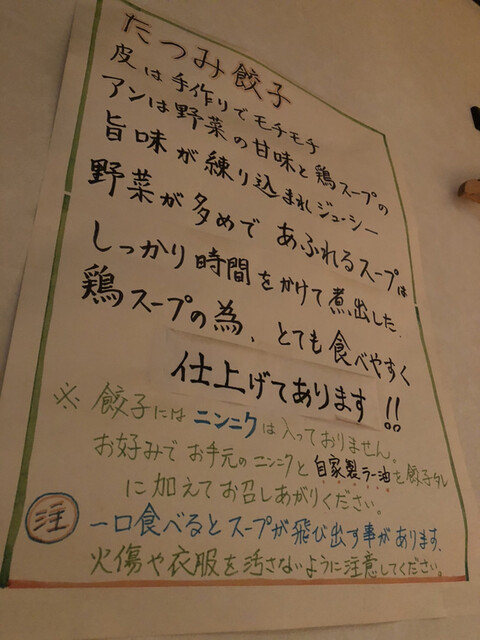 たつみ餃子
皮は手作りでモチモチ
アンは野菜の甘味と鶏スープの
旨味が練り込まれジューシー
野菜が多めで あふれるスープは
しっかり時間をかけて煮出した
鶏スープの為、とても食べやすく
仕上げてあります!!
※ 餃子にはニンニクは入っておりません。
お好みでお手元のニンニクと自家製ラー油を餃子タレ
に加えてお召しあがりください。
注 一口食べるとスープが飛び出す事があります、
火傷や衣服を汚さないように注意してください。